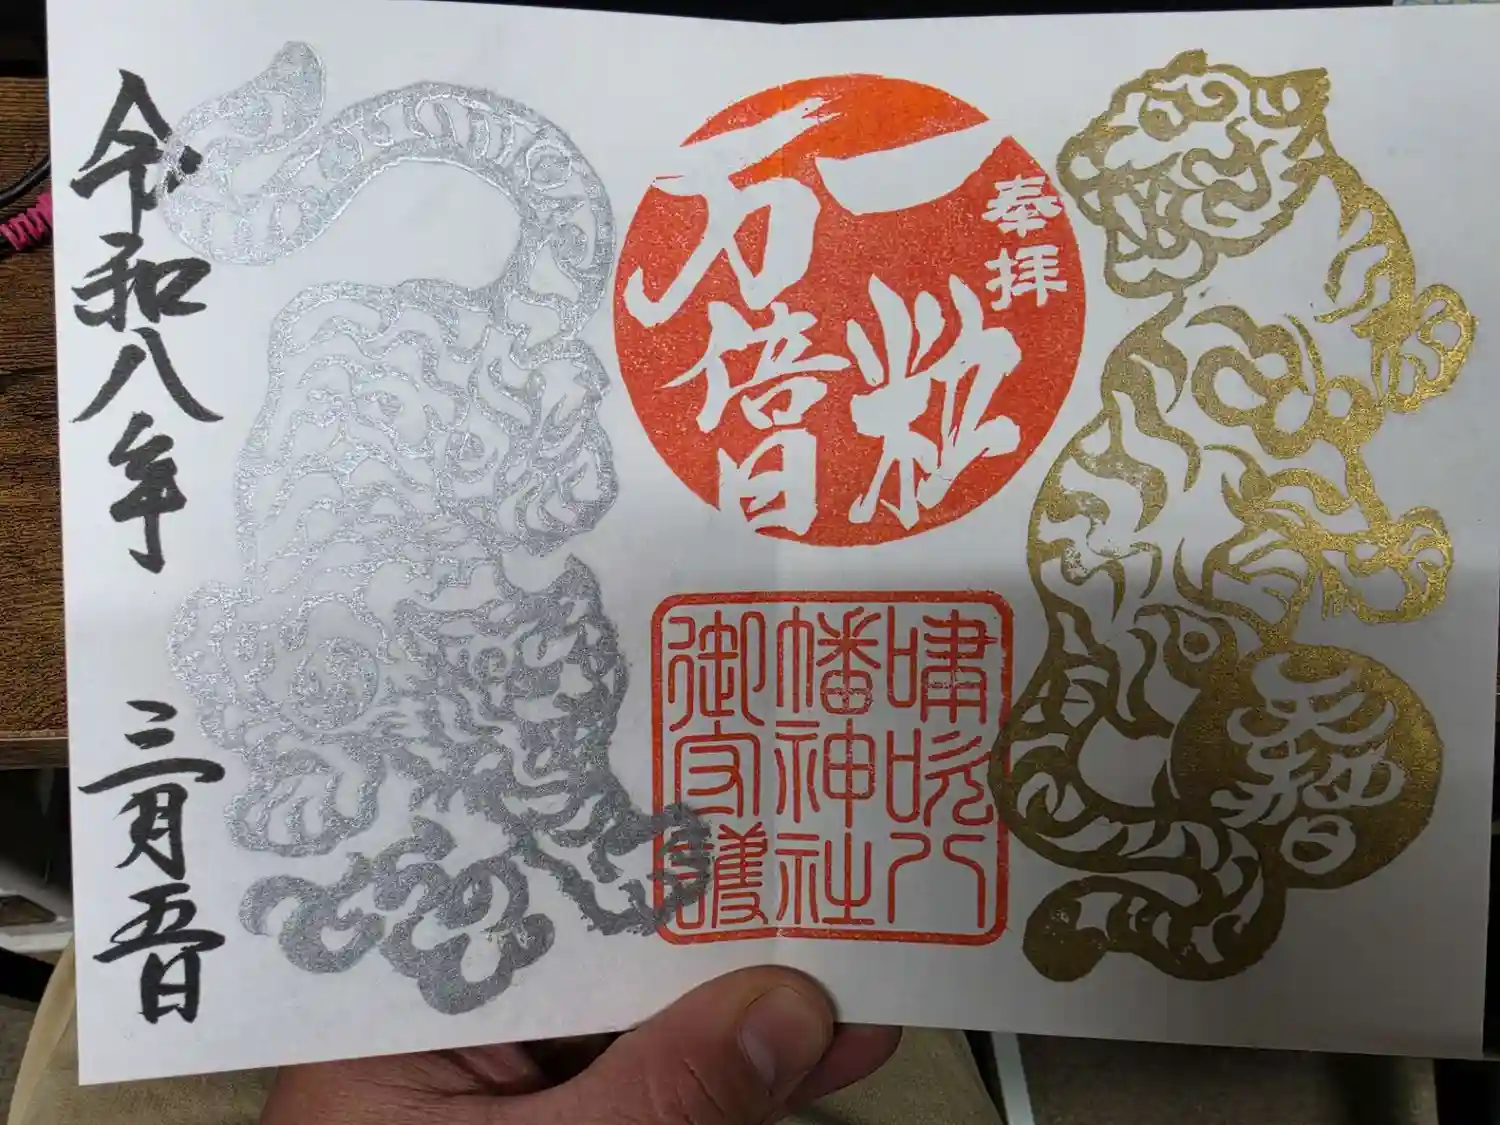 奉拝
一粒
万倍日
嘯吹八
幡神社
御守護
令和八年 三月五日